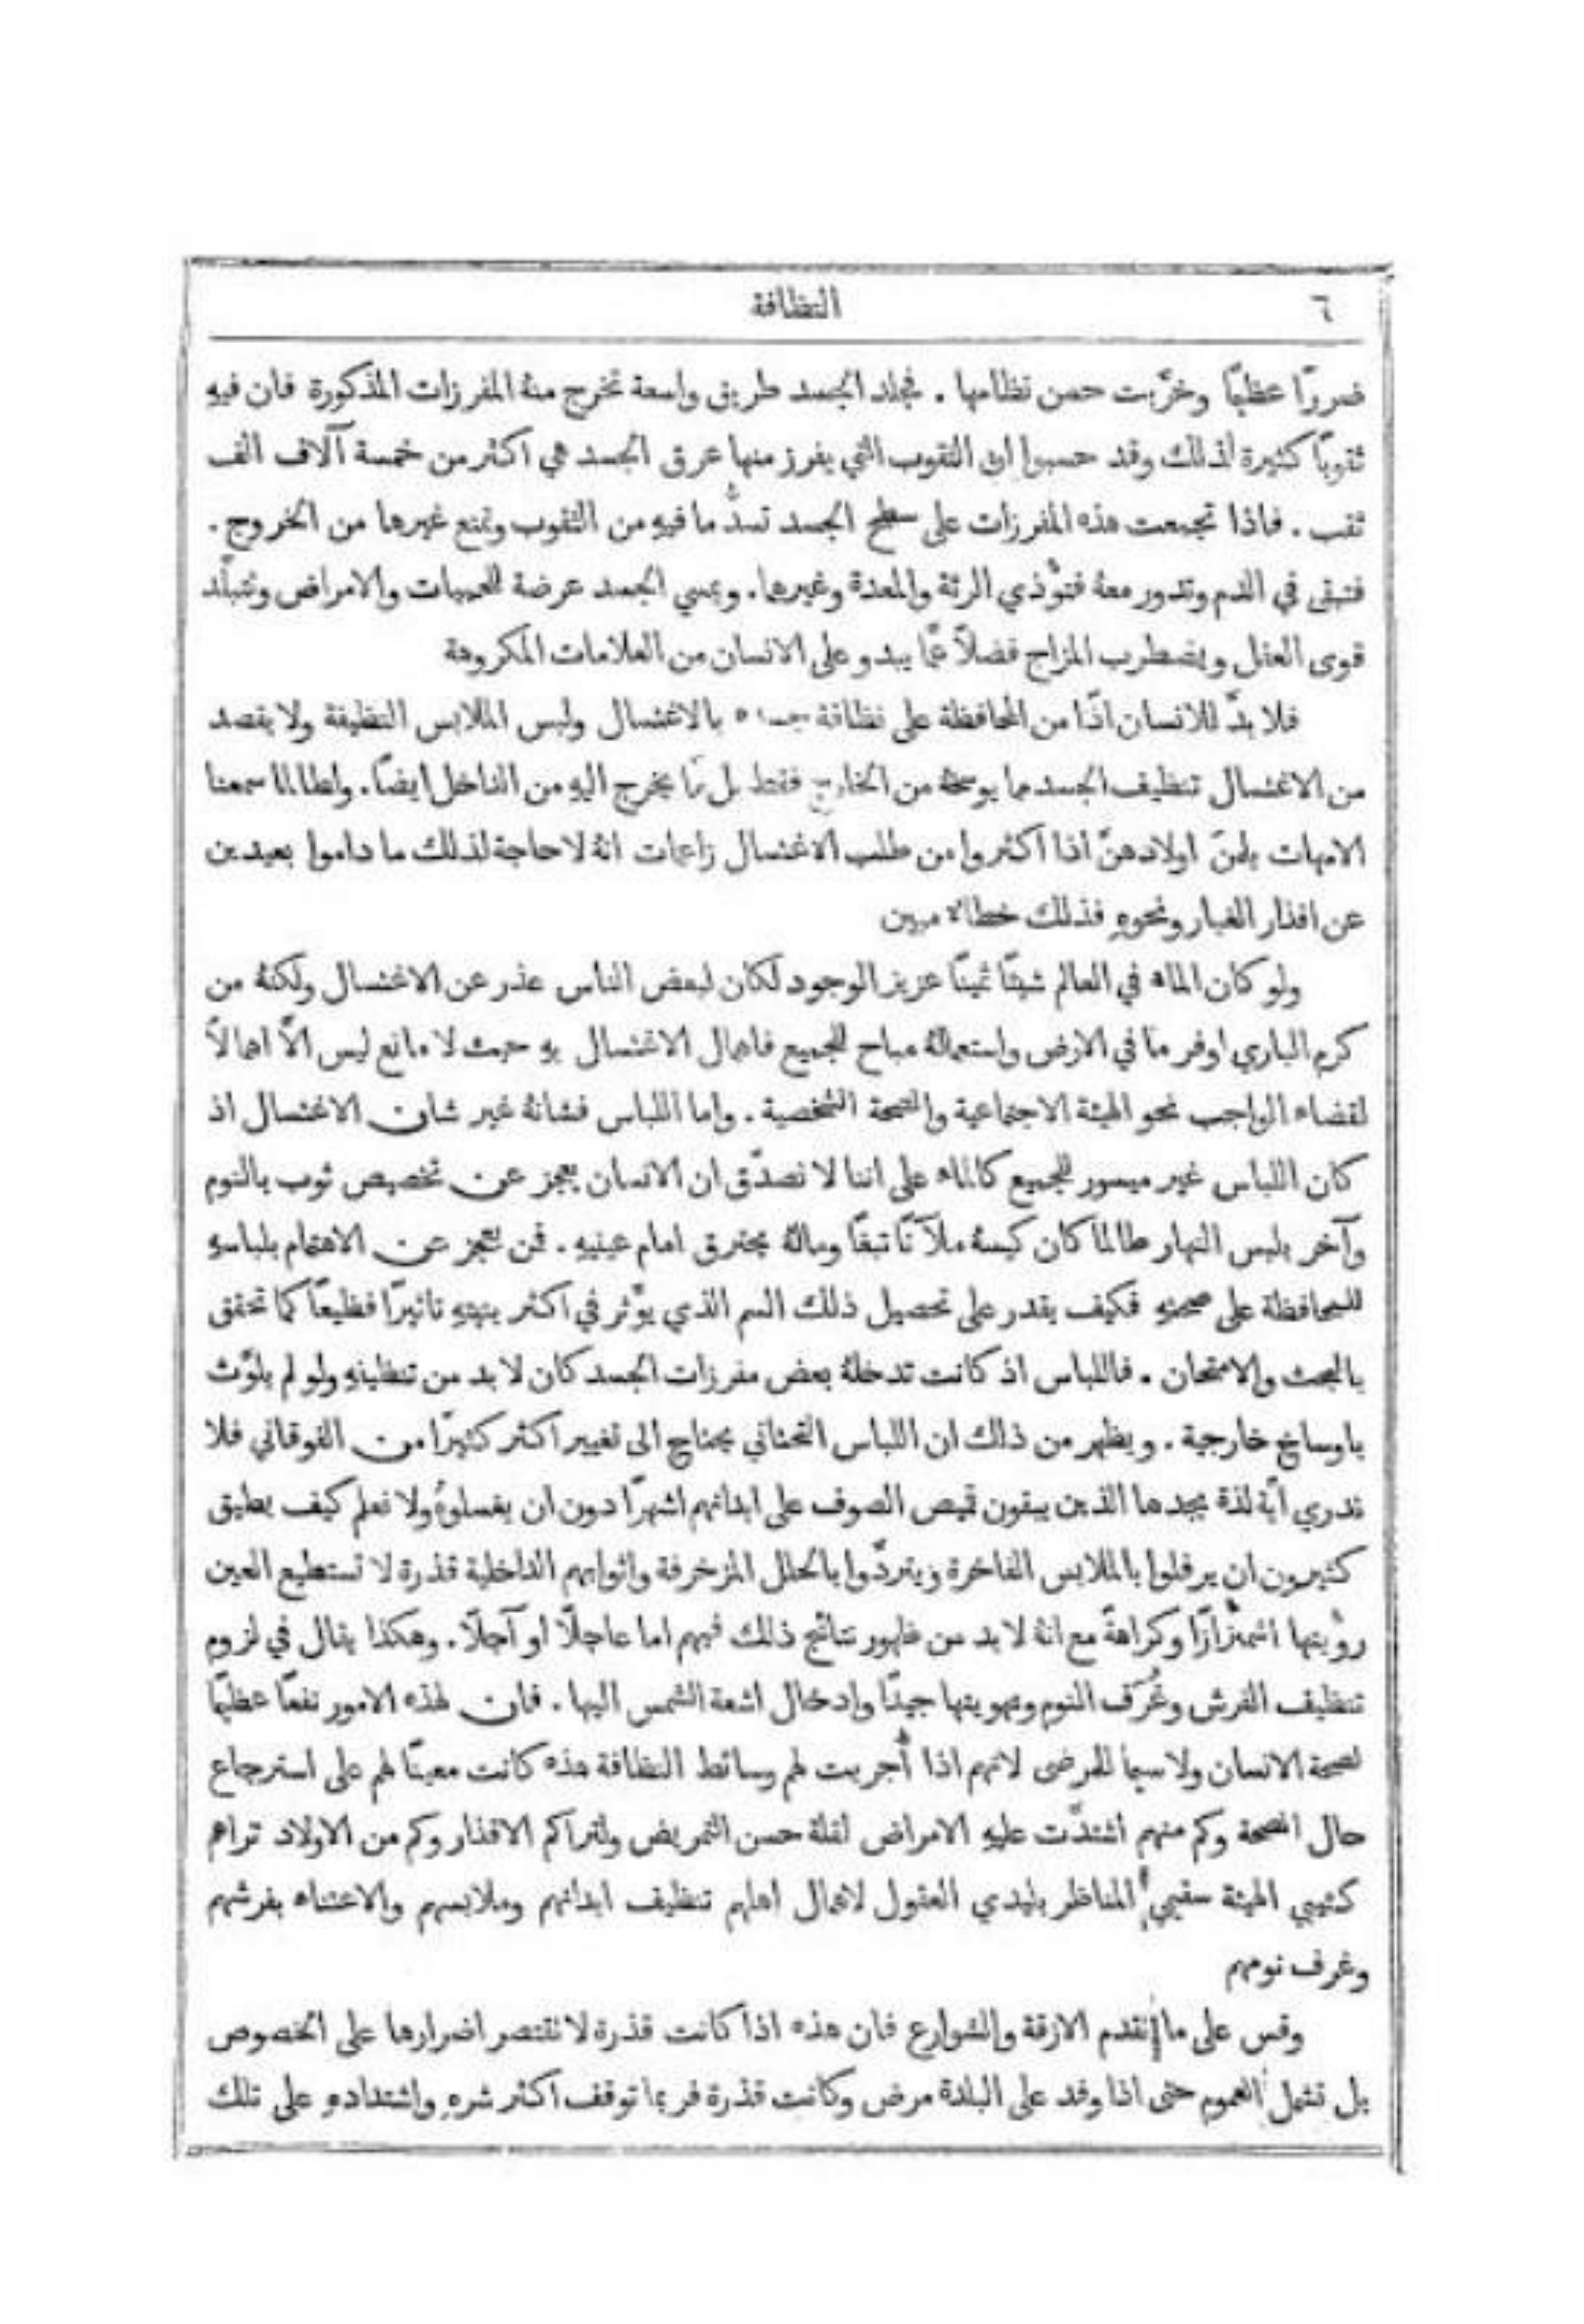 ٦
النظافة
ضررًا عظيمًا وخرَّبت حسن نظامها . فجلد الجسد طريق واسعة تخرج منهُ المفرزات المذكورة فان فيهِ
ثقوبًا كثيرة لذلك وقد حسبوا ان الثقوب التي يفرز منها عرق الجسد هي اكثر من خمسة آلاف الف
ثقب . فاذا تجمعت هذه المفرزات على سطح الجسد تسدُّ ما فيهِ من الثقوب وتمنع غيرها من الخروج .
فتبقى في الدم وتدور معهُ فتؤذي الرئة والمعدة وغيرها. ويمسي الجسد عرضة للحميات والامراض وتتبلَّد
قوى العقل ويضطرب المزاج فضلاً عمَّا يبدو على الانسان من العلامات المكروهة
فلا بدَّ للانسان اذًا من المحافظة على نظافة جسده بالاغتسال ولبس الملابس النظيفة ولا يقصد
من الاغتسال تنظيف الجسد مما يوسخهُ من الخارج فقط بل مَّا يخرج اليهِ من الداخل ايضًا. ولطالما سمعنا
الامهات يلمنَ اولادهنَّ اذا اكثروا من طلب الاغتسال زاعمات انهُ لا حاجة لذلك ما داموا بعيدين
عن اقذار الغبار ونحوهِ فذلك خطاء مبين
ولو كان الماء في العالم شيئًا ثمينًا عزيز الوجود لكان لبعض الناس عذر عن الاغتسال ولكنهُ من
كرم الباري اوفر ما في الارض واستعمالهُ مباح للجميع فاهمال الاغتسال بهِ حيث لا مانع ليس الَّا اهمالاً
لقضاء الواجب نحو الهيئة الاجتماعية والصحة الشخصية . واما اللباس فشانهُ غير شان الاغتسال اذ
كان اللباس غير ميسور للجميع كالماء على اننا لا نصدّق ان الانسان يعجز عن تخصيص ثوب بالنوم
وآخر بلبس النهار طالما كان كيسهُ ملآنًا تبغًا ومالهُ يحترق امام عينيهِ . فمن يعجز عن الاهتمام بلباسهِ
للمحافظة على صحتهِ فكيف يقدر على تحصيل ذلك السم الذي يؤثر في اكثر بنيتهِ تاثيرًا فظيعًا كما تحقق
بالبحث والامتحان . فاللباس اذ كانت تدخلهُ بعض مفرزات الجسد كان لا بد من تنظيفهِ ولو لم يلوَّث
باوساخ خارجية . ويظهر من ذلك ان اللباس التحتاني يحتاج الى تغيير اكثر كثيرًا من الفوقاني فلا
ندري ايَّة لذة يجدها الذين يبقون قميص الصوف على ابدانهم اشهرًا دون ان يغسلوهُ ولا نعلم كيف يطيق
كثيرون ان يرفلوا بالملابس الفاخرة ويتردَّوا بالحلل المزخرفة واثوابهم الداخلية قذرة لا تستطيع العين
رؤيتها اشمئزازًا وكراهةً مع انهُ لا بد من ظهور نتائج ذلك فيهم اما عاجلًا او آجلًا. وهكذا يقال في لزوم
تنظيف الفرش وغُرَف النوم وتهويتها جيدًا وادخال اشعة الشمس اليها . فان لهذه الامور نفعًا عظيمًا
لصحة الانسان ولاسيما للمرضى لانهم اذا أُجريت لهم وسائط النظافة هذه كانت معينًا لهم على استرجاع
حال الصحة وكم منهم اشتدَّت عليهِ الامراض لقلة حسن التمريض ولتراكم الاقذار وكم من الاولاد تراهم
كئيبي الهيئة سقيمي المناظر بليدي العقول لاهمال اهلهم تنظيف ابدانهم وملابسهم والاعتناء بفرشهم
وغرف نومهم
وقس على ما تقدم الازقة والشوارع فان هذه اذا كانت قذرة لا تقتصر اضرارها على الخصوص
بل تشمل العموم حتى اذا وفد على البلدة مرض وكانت قذرة فربما توقف اكثر شرهِ واشتدادهِ على تلك